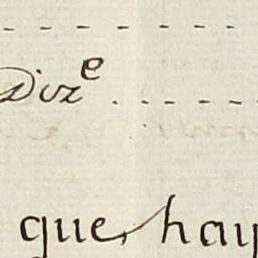 Diz^e
que hay